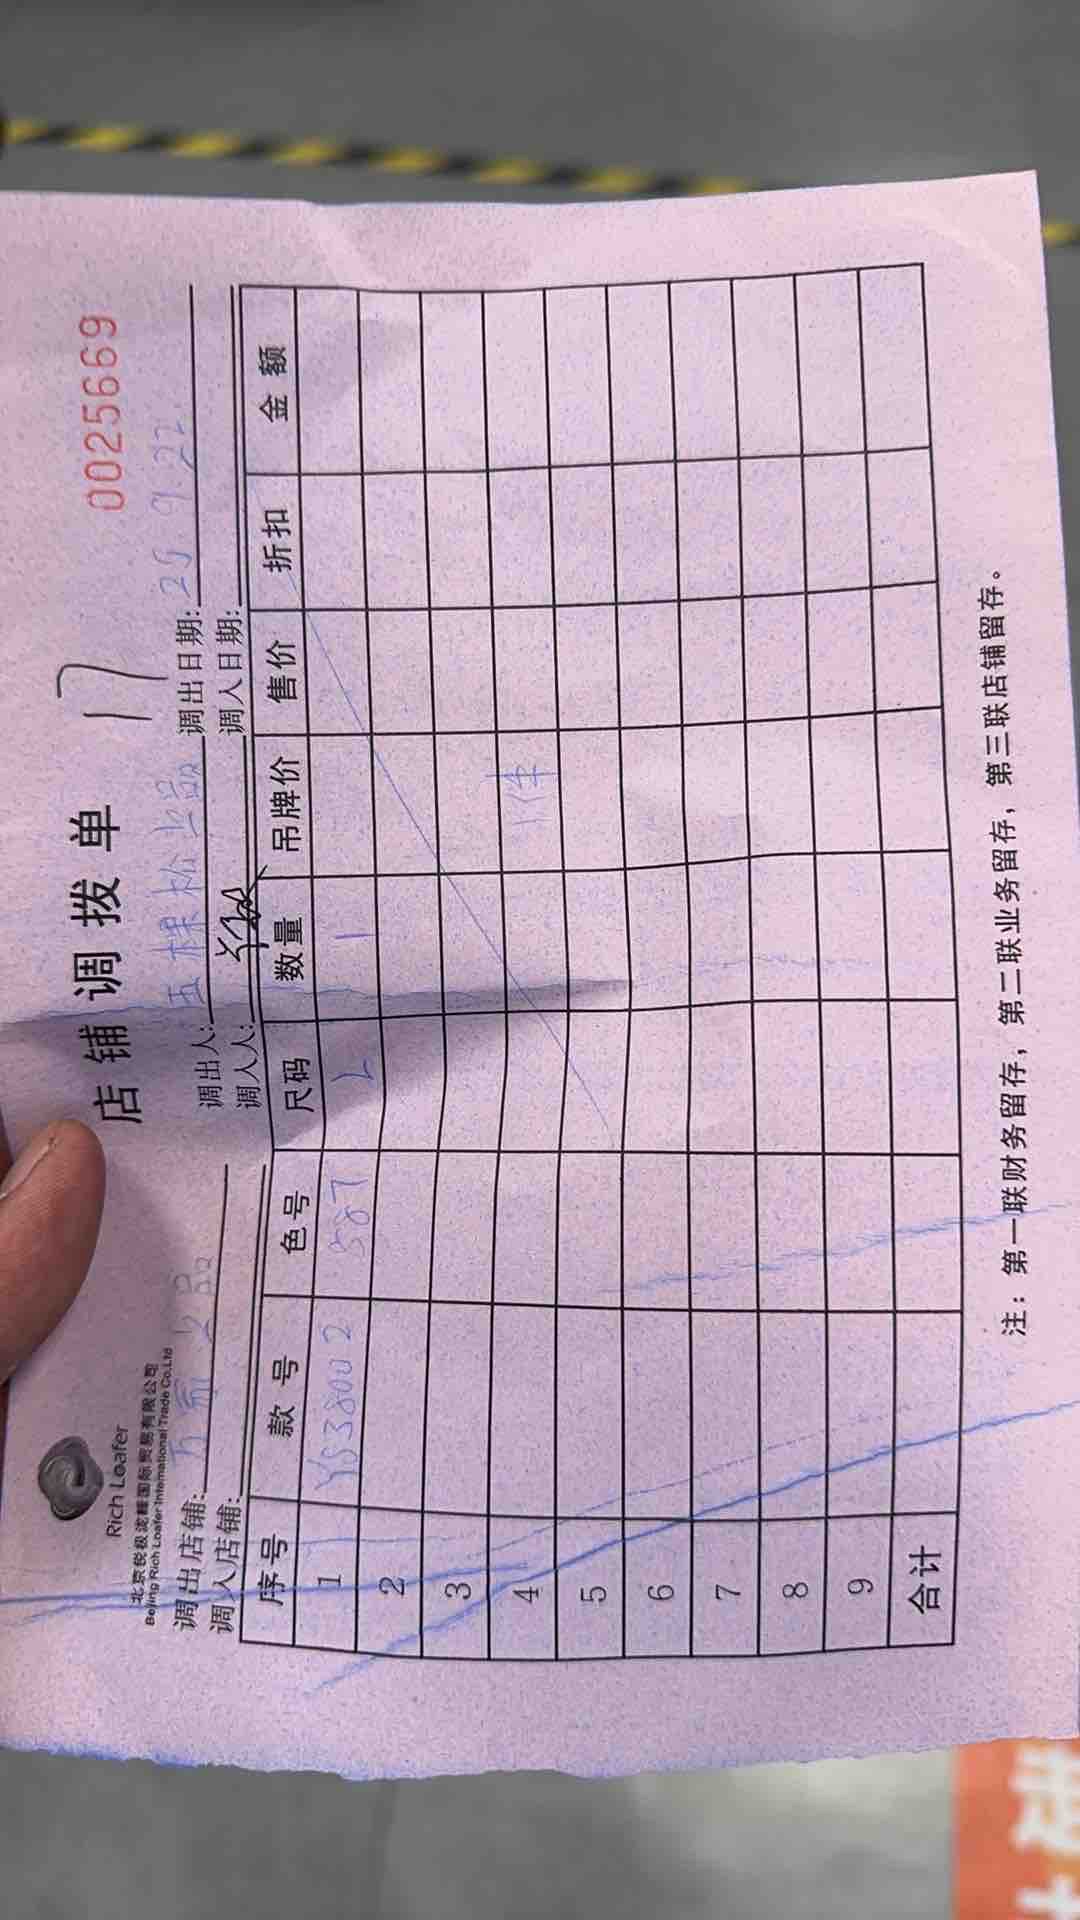 Rich Loafer
北京锐极泷锋国际贸易有限公司
Beijing Rich Loafer International Trade Co.Ltd
店铺调拨单 17
0025669
调出店铺: 调出人: 五棵松上品 调出日期: 25 9.22
调入店铺: 调入人: 调入日期:
序号 款号 色号 尺码 数量 吊牌价 售价 折扣 金额
1 YS38002 587 L 1
2
3
4 1件
5
6
7
8
9
合计
注: 第一联财务留存, 第二联业务留存, 第三联店铺留存。